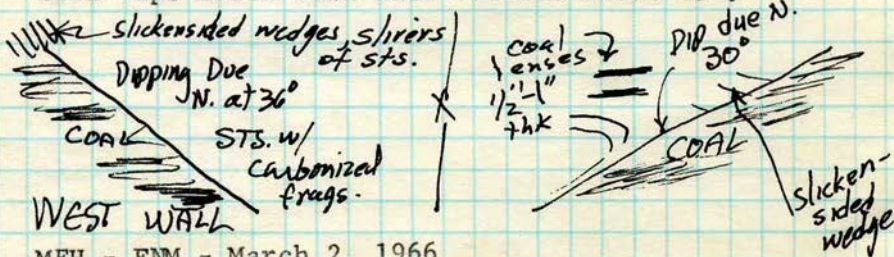 Slickensided wedges, slivers
of sts.
Dipping Due
N. at 36°
COAL
STS. w/
Carbonized
frags.
WEST WALL
coal
lenses
1/2"-1"
thk
Dip due N.
30°
COAL
Slicken-
sided
wedge
MFH - ENM - March 2, 1966